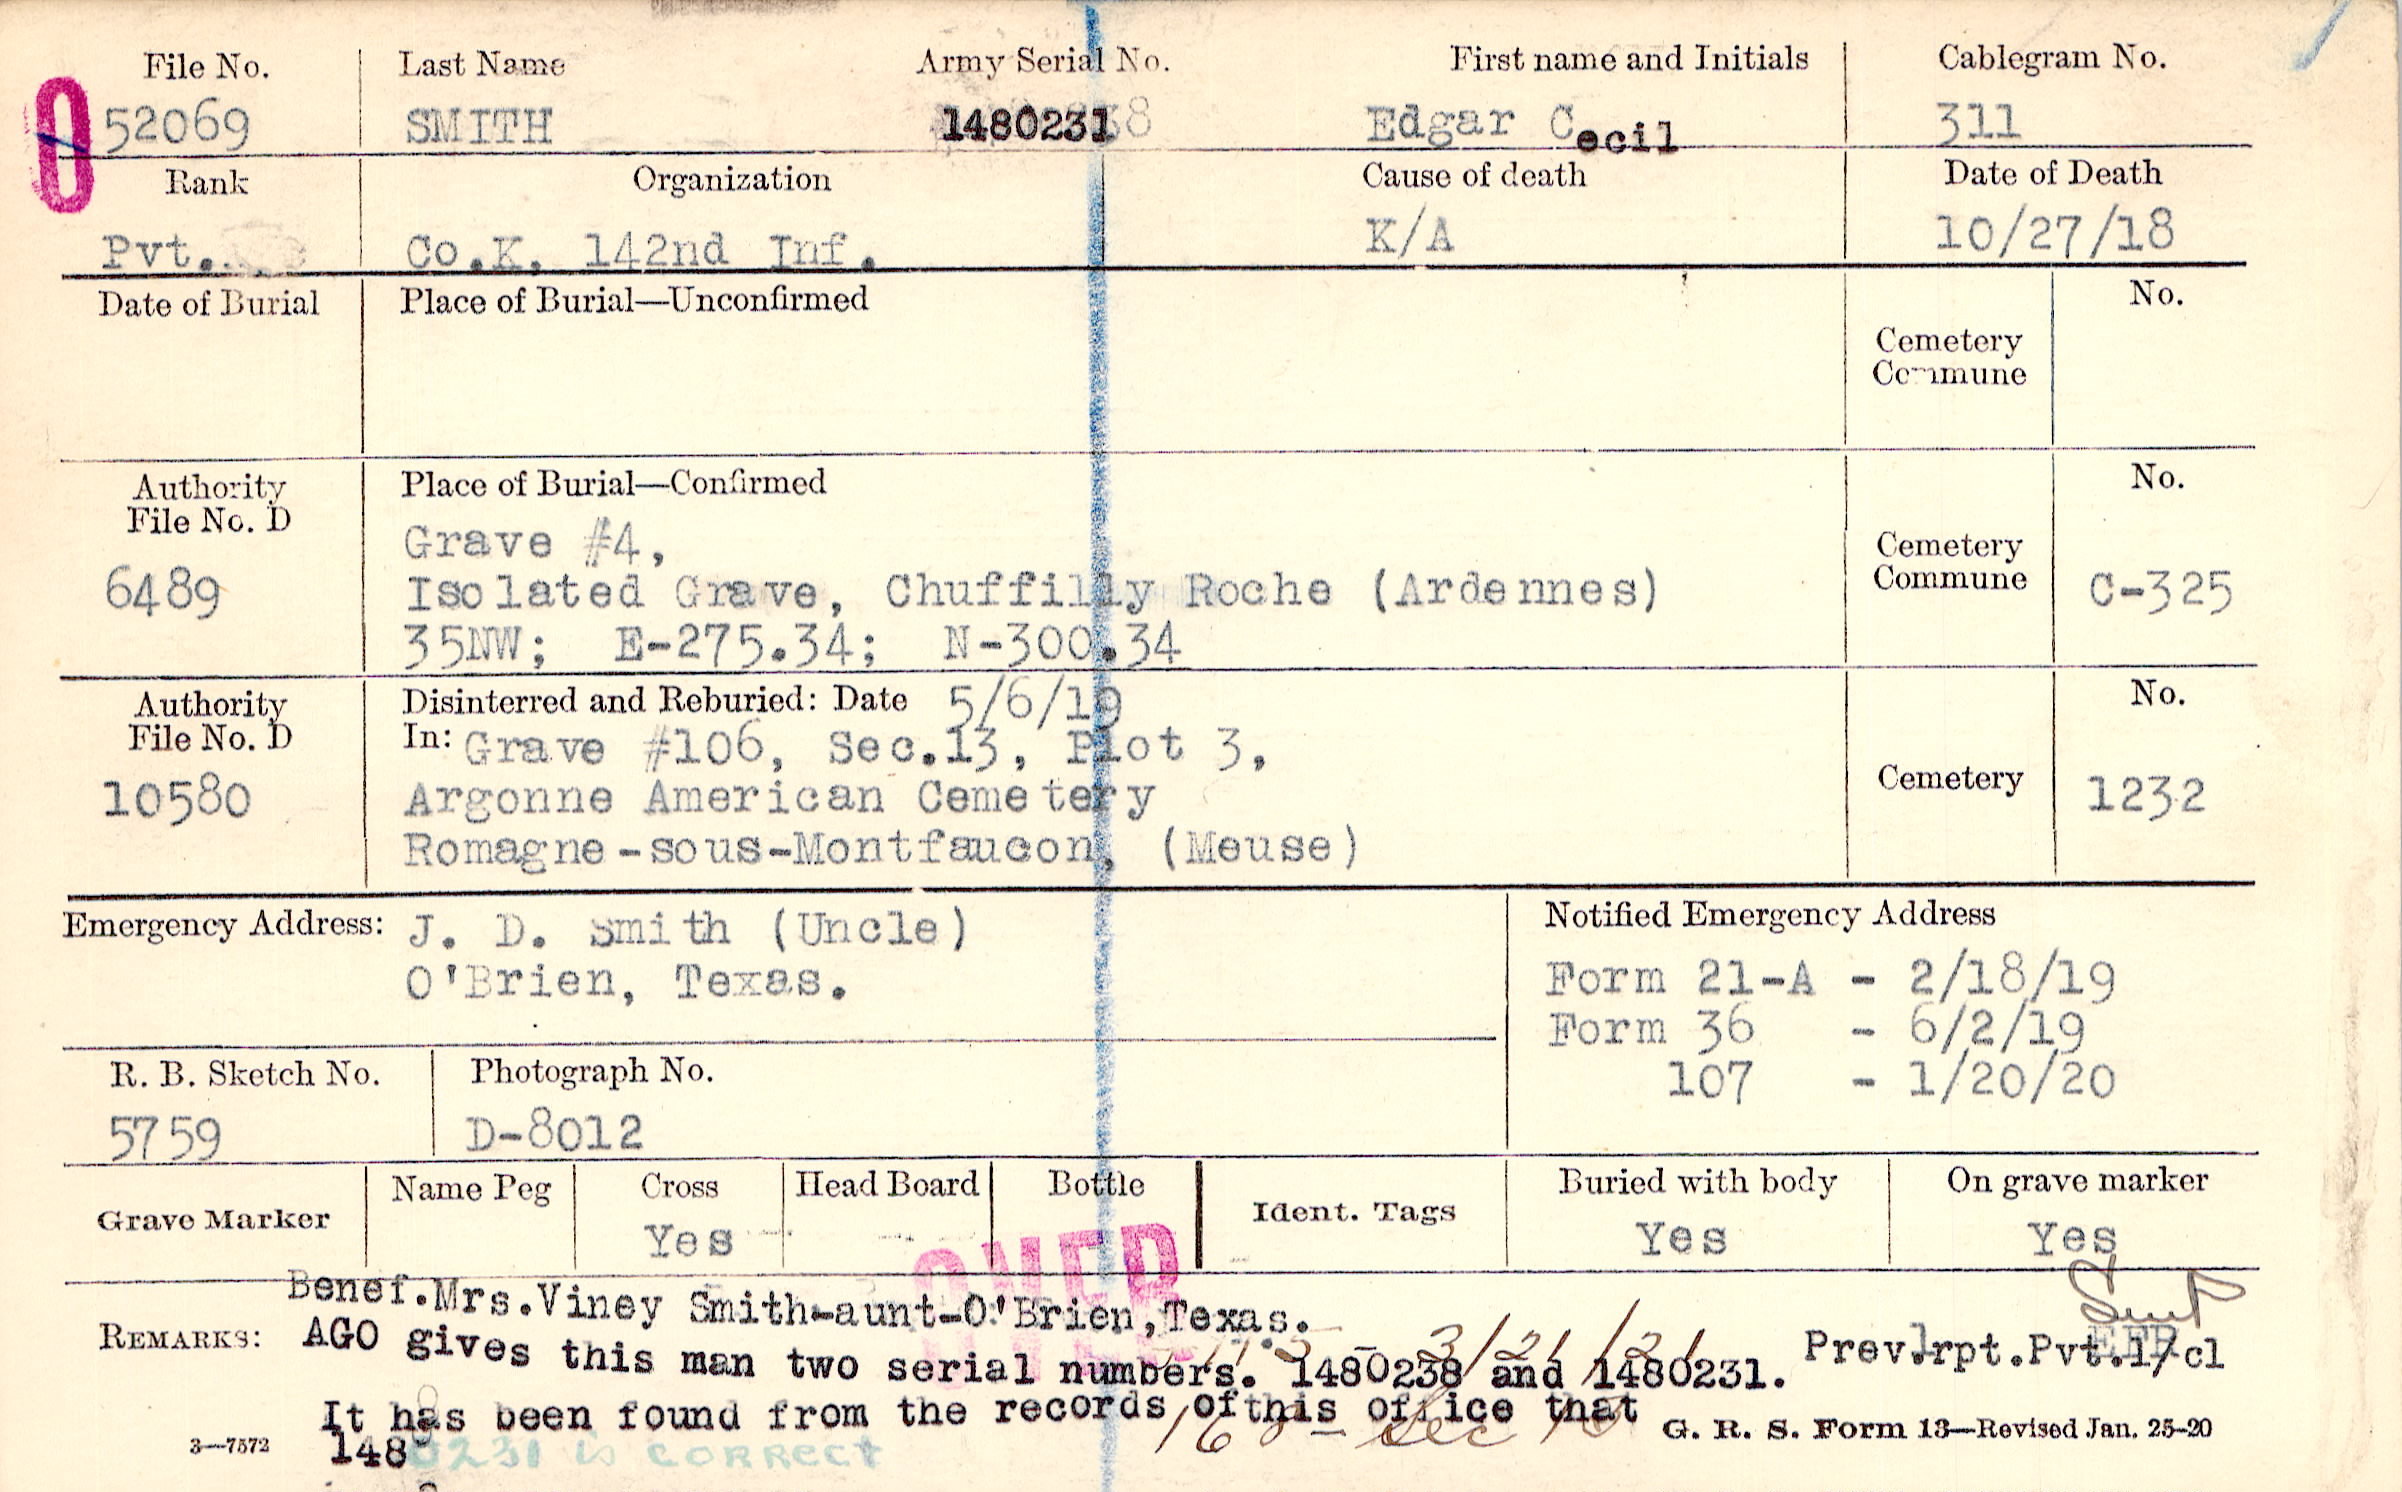 File No. Last Name Army Serial No. First name and Initials Cablegram No.
O 52069 SMITH 1480231 Edgar Cecil 311
Rank Organization Cause of death Date of Death
Pvt. Co.K. 142nd Inf. K/A 10/27/18
Date of Burial Place of Burial—Unconfirmed No.
Cemetery
Commune
Authority Place of Burial—Confirmed No.
File No. D
Grave #4,
Cemetery
6489 Isolated Grave, Chuffilly Roche (Ardennes) Commune C-325
35NW; E-275.34; N-300.34
Authority Disinterred and Reburied: Date 5/6/19 No.
File No. D In: Grave #106, Sec.13, Plot 3,
10580 Argonne American Cemetery Cemetery 1232
Romagne-sous-Montfaucon, (Meuse)
Emergency Address: J. D. Smith (Uncle) Notified Emergency Address
O'Brien, Texas. Form 21-A - 2/18/19
Form 36 - 6/2/19
107 - 1/20/20
R. B. Sketch No. Photograph No.
5759 D-8012
Grave Marker Name Peg Cross Head Board Bottle Ident. Tags Buried with body On grave marker
Yes Yes Yes
OVER
Benef.Mrs.Viney Smith-aunt-O'Brien,Texas.
3/21/21
REMARKS: AGO gives this man two serial numbers. 1480238 and 1480231. Prev.rpt.Pvt.1/cl
It has been found from the records of this office that
1480231 is correct
3—7572 G. R. S. Form 13—Revised Jan. 25-20